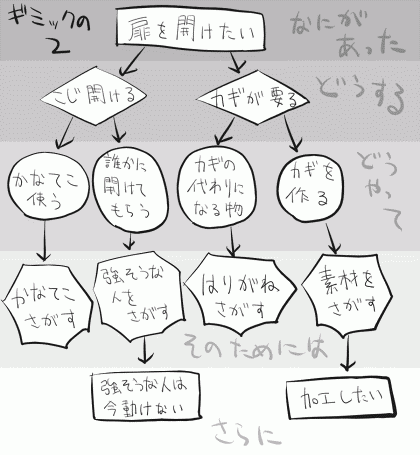 ギミックの
2
扉を開けたい
なにが
あった
こじ開ける
カギが要る
どうする
かなてこ
使う
誰かに
開けて
もらう
カギの
代わりに
なる物
カギを
作る
どう
やって
かなてこ
さがす
強そうな
人を
さがす
はりがね
さがす
素材を
さがす
そのためには
強そうな人は
今動けない
加工したい
さらに